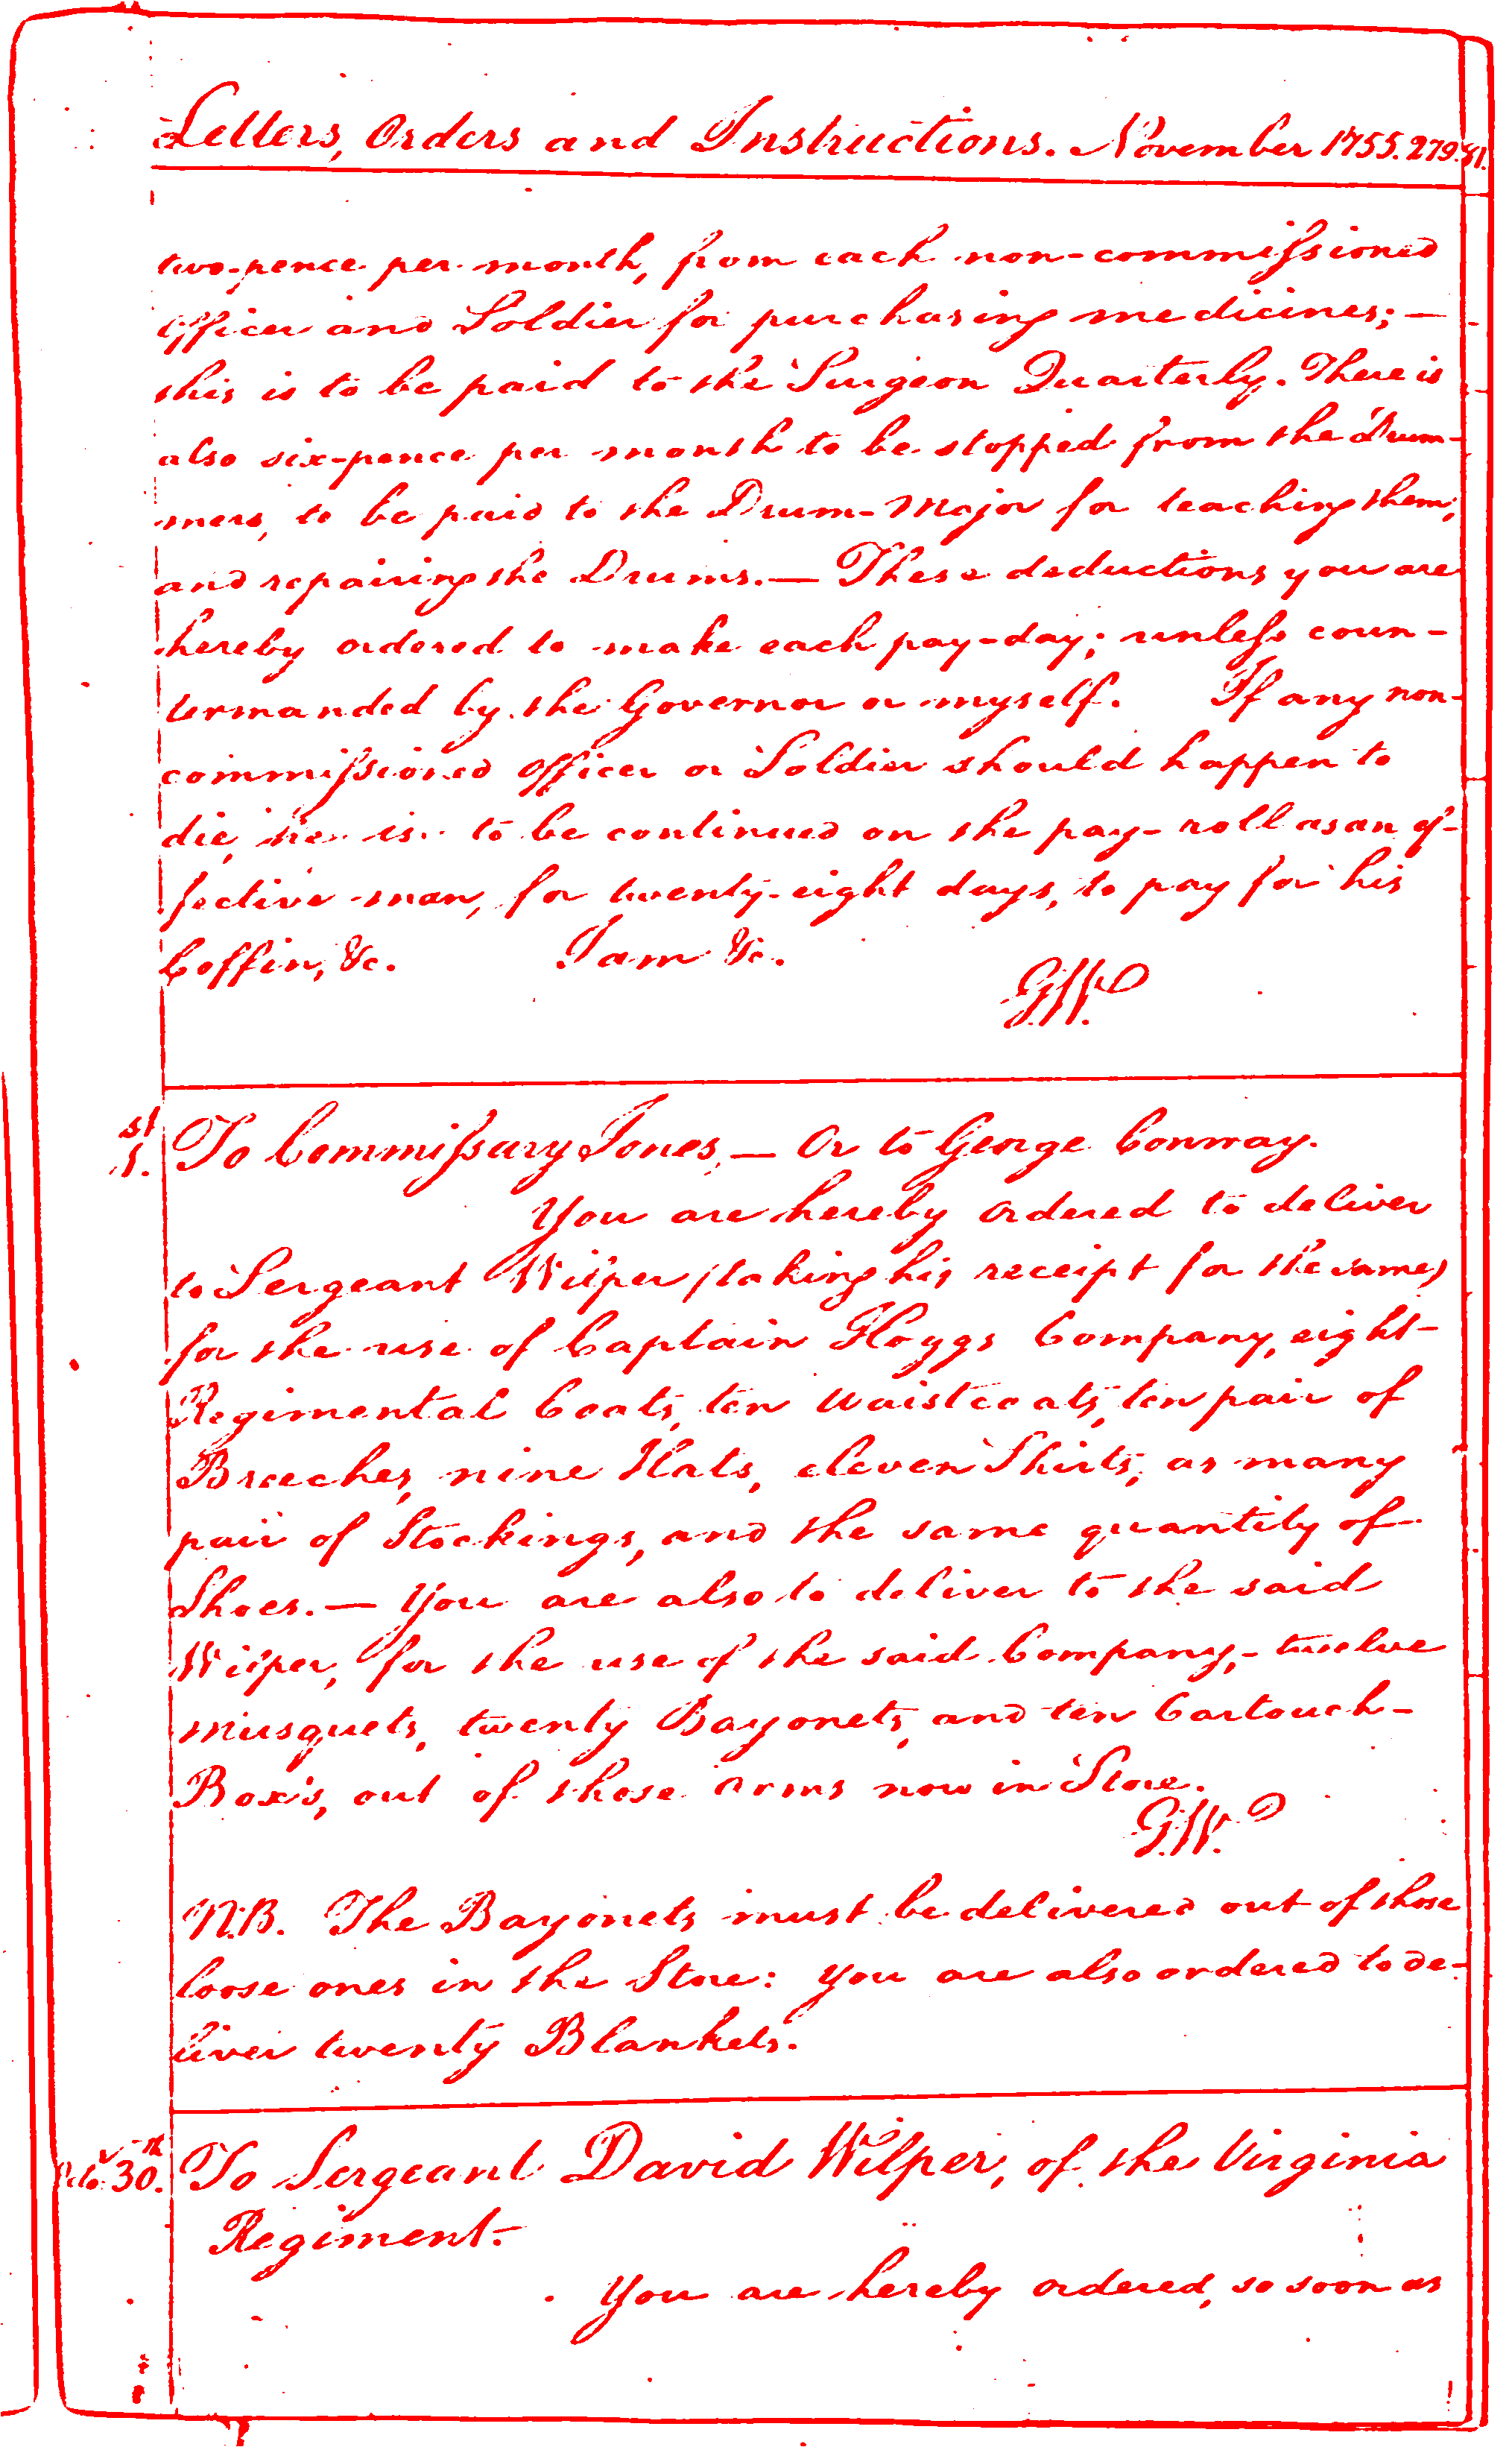 Letters, Orders and Instructions. November 1755. 279.
two-pence per month, from each non-commissioned
Officer and Soldier for purchasing medicines; —
this is to be paid to the Surgeon Quarterly. There is
also six-pence per month to be stopped from the Drum-
mers, to be paid to the Drum-Major for teaching them,
and repairing the Drums. — These deductions you are
hereby ordered to make each pay-day; unless coun-
termanded by the Governor or myself. If any non-
commissioned Officer or Soldier should happen to
die, he is to be continued on the pay-roll as an ef-
fective man, for twenty-eight days, to pay for his
Coffin, &c. I am &c.
G.W.
1st. To Commissary Jones, — Or to George Conway.
You are hereby ordered to deliver
to Sergeant Wilper (taking his receipt for the same)
for the use of Captain Hoggs Company, eight
Regimental Coats, ten Waistcoats, ten pair of
Breeches, nine Hats, eleven Shirts, as many
pair of Stockings, and the same quantity of
Shoes. — You are also to deliver to the said
Wilper, for the use of the said Company, - twelve
musquets, twenty Bayonets, and ten Cartouch-
Box's, out of those arms now in Store.
G.W.
N.B. The Bayonets must be delivered out of those
loose ones in the Store: you are also ordered to de-
liver twenty Blankets.
Octo. 30th. To Sergeant David Wilper, of the Virginia
Regiment.
You are hereby ordered, so soon as